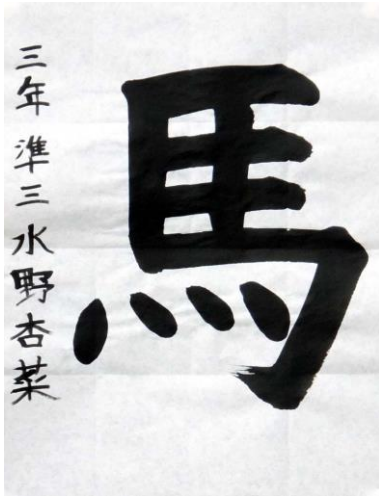 馬
三年 準三 水野杏菜